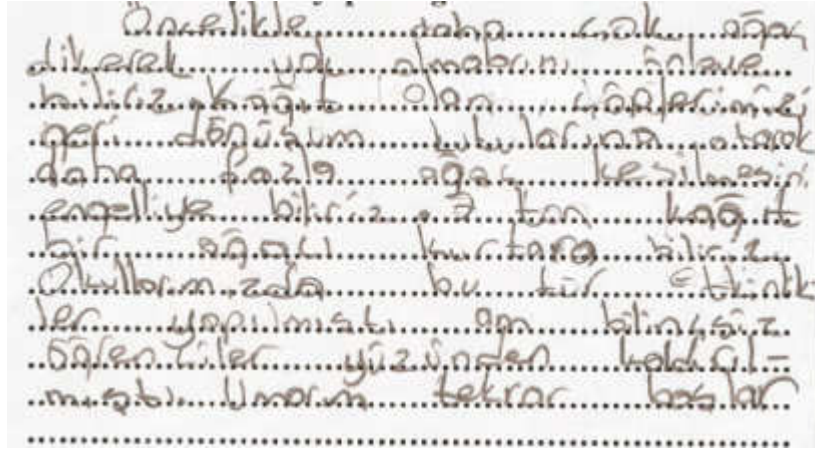 Öncelikle daha çok ağaç
dikerek yok olmalarını önleye
biliriz. Kağıt Olan çöplerimizi
geri dönüşüm kutularına atarak
daha fazla ağaç kesilmesini
engelliye biliriz. 3 ton kağıt
bir ağacı kurtara biliriz.
Okullarımızda bu tür etkinlik
ler yapılmıştı am bilinçsiz
öğrenciler yüzünden kaldırıl-
mıştı. Umarım tekrar başlar